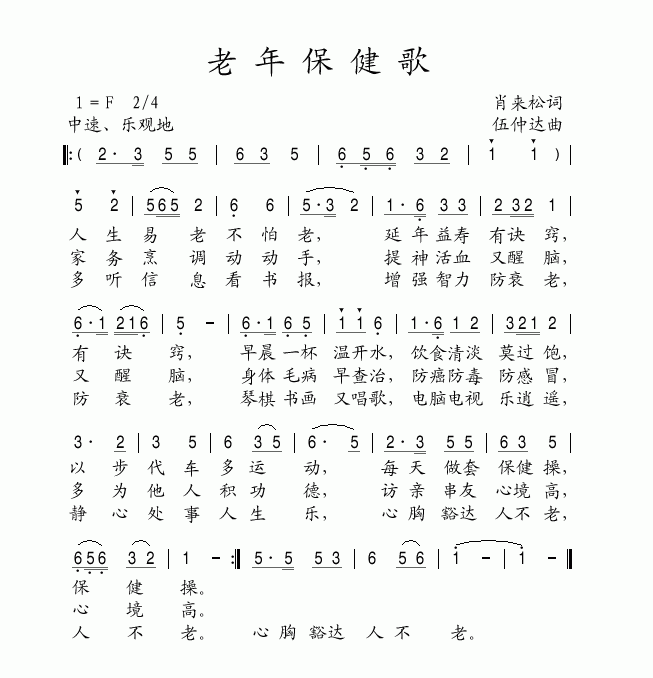 老年保健歌
1=F 2/4 肖来松词
中速、乐观地 伍仲达曲
‖:( 2· 3 5 5 | 6 3 5 | 6 5 6 3 2 | 1 1 ) |
5 2 | 5 6 5 2 | 6 6 | 5·3 2 | 1·6 3 3 | 2 3 2 1 |
人生易老不怕老, 延年益寿有诀窍,
家务烹调动动手, 提神活血又醒脑,
多听信息看书报, 增强智力防衰老,
6·1 2 1 6 | 5 - | 6·1 6 5 | 1 1 6 | 1·6 1 2 | 3 2 1 2 |
有诀窍, 早晨一杯温开水, 饮食清淡莫过饱,
又醒脑, 身体毛病早查治, 防癌防毒防感冒,
防衰老, 琴棋书画又唱歌, 电脑电视乐逍遥,
3· 2 | 3 5 | 6 3 5 | 6· 5 | 2·3 5 5 | 6 3 5 |
以步代车多运动, 每天做套保健操,
多为他人积功德, 访亲串友心境高,
静心处事人生乐, 心胸豁达人不老,
6 5 6 3 2 | 1 - :‖ 5·5 5 3 | 6 5 6 | 1 - | 1 - ‖
保健操。
心境高。
人不老。 心胸豁达人不老。